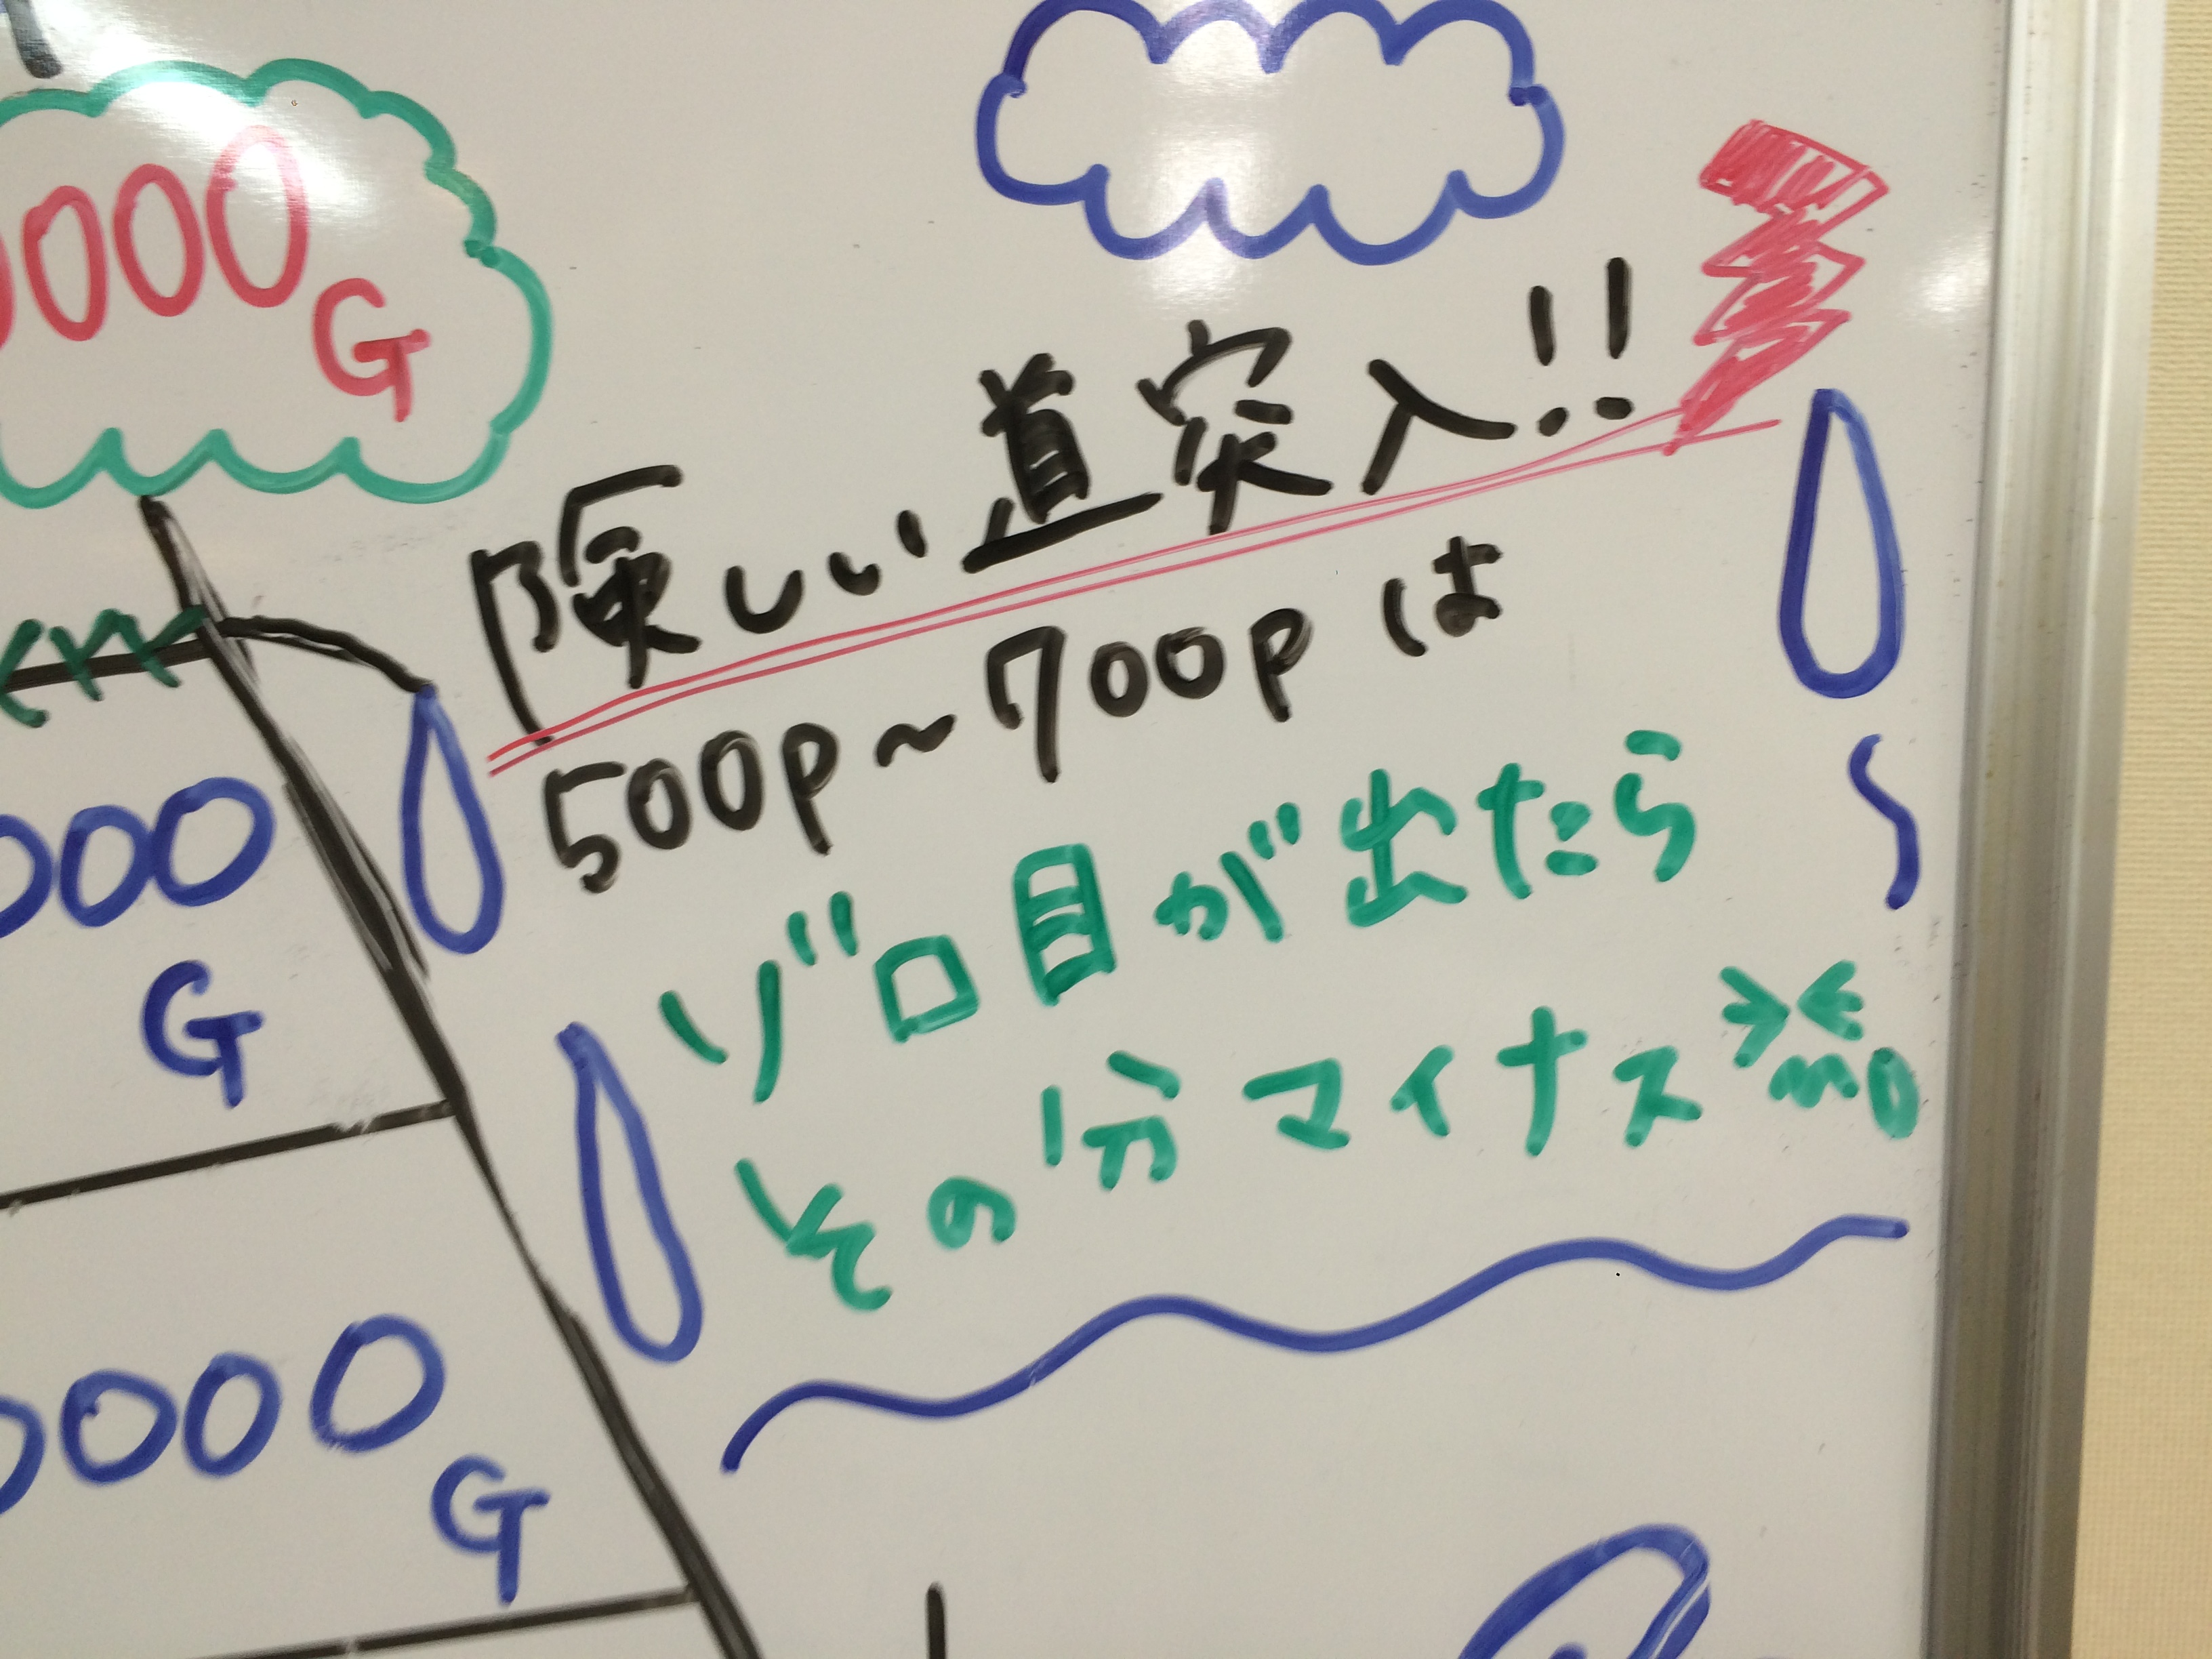 000G
険しい道突入!!
500P~700Pは
ゾロ目が出たら
その分マイナス
000
G
0000
G